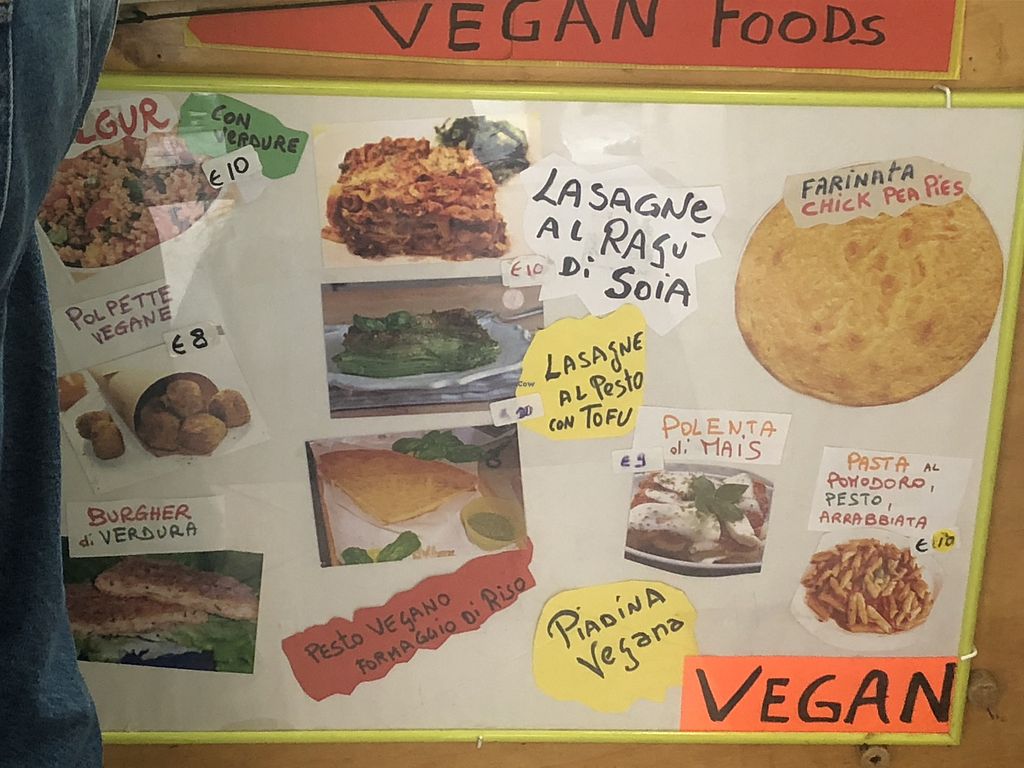 VEGAN FOODS
LGUR
CON
VERDURE
€10
POLPETTE
VEGANE
€8
BURGHER
di VERDURA
LASAGNE
AL RAGÙ
DI SOIA
€10
LASAGNE
AL PESTO
CON TOFU
PESTO VEGANO
FORMAGGIO DI RISO
PIADINA
Vegana
FARINATA
CHICK PEA PIES
POLENTA
di MAIS
€9
PASTA AL
POMODORO,
PESTO,
ARRABBIATA
€10
VEGAN